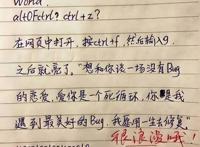 world.
alt0Fctrl? ctrl+z?
在网页中打开，按ctrl+f，然后输入9.
之后就亮了。"想和你谈一场没有Bug
的恋爱，爱你是一个死循环，你是我
遇到最美好的Bug，我要用一生去修复"
很浪漫哦！